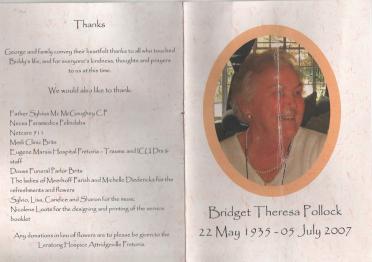 Thanks
George and family convey their heartfelt thanks to all who touched
Biddy's life, and for everyone's kindness, thoughts and prayers
to us at this time.
We would also like to thank:
Father Sylvius Mc McGaughey CP
Netcare 911
Medi Clinic Brits
Eugene Marais Hospital Pretoria - Trauma and ICU Drs &
staff
Doves Funeral Parlor Brits
The ladies of Meerhoff Parish and Michelle Diedericks for the
refreshments and flowers
Sylvio, Lisa, Candice and Sharon for the music
Nicolene Loots for the designing and printing of the service
booklet
Any donations in lieu of flowers are to please be given to the
Leratong Hospice Atteridgeville Pretoria.
Bridget Theresa Pollock
22 May 1935 - 05 July 2007